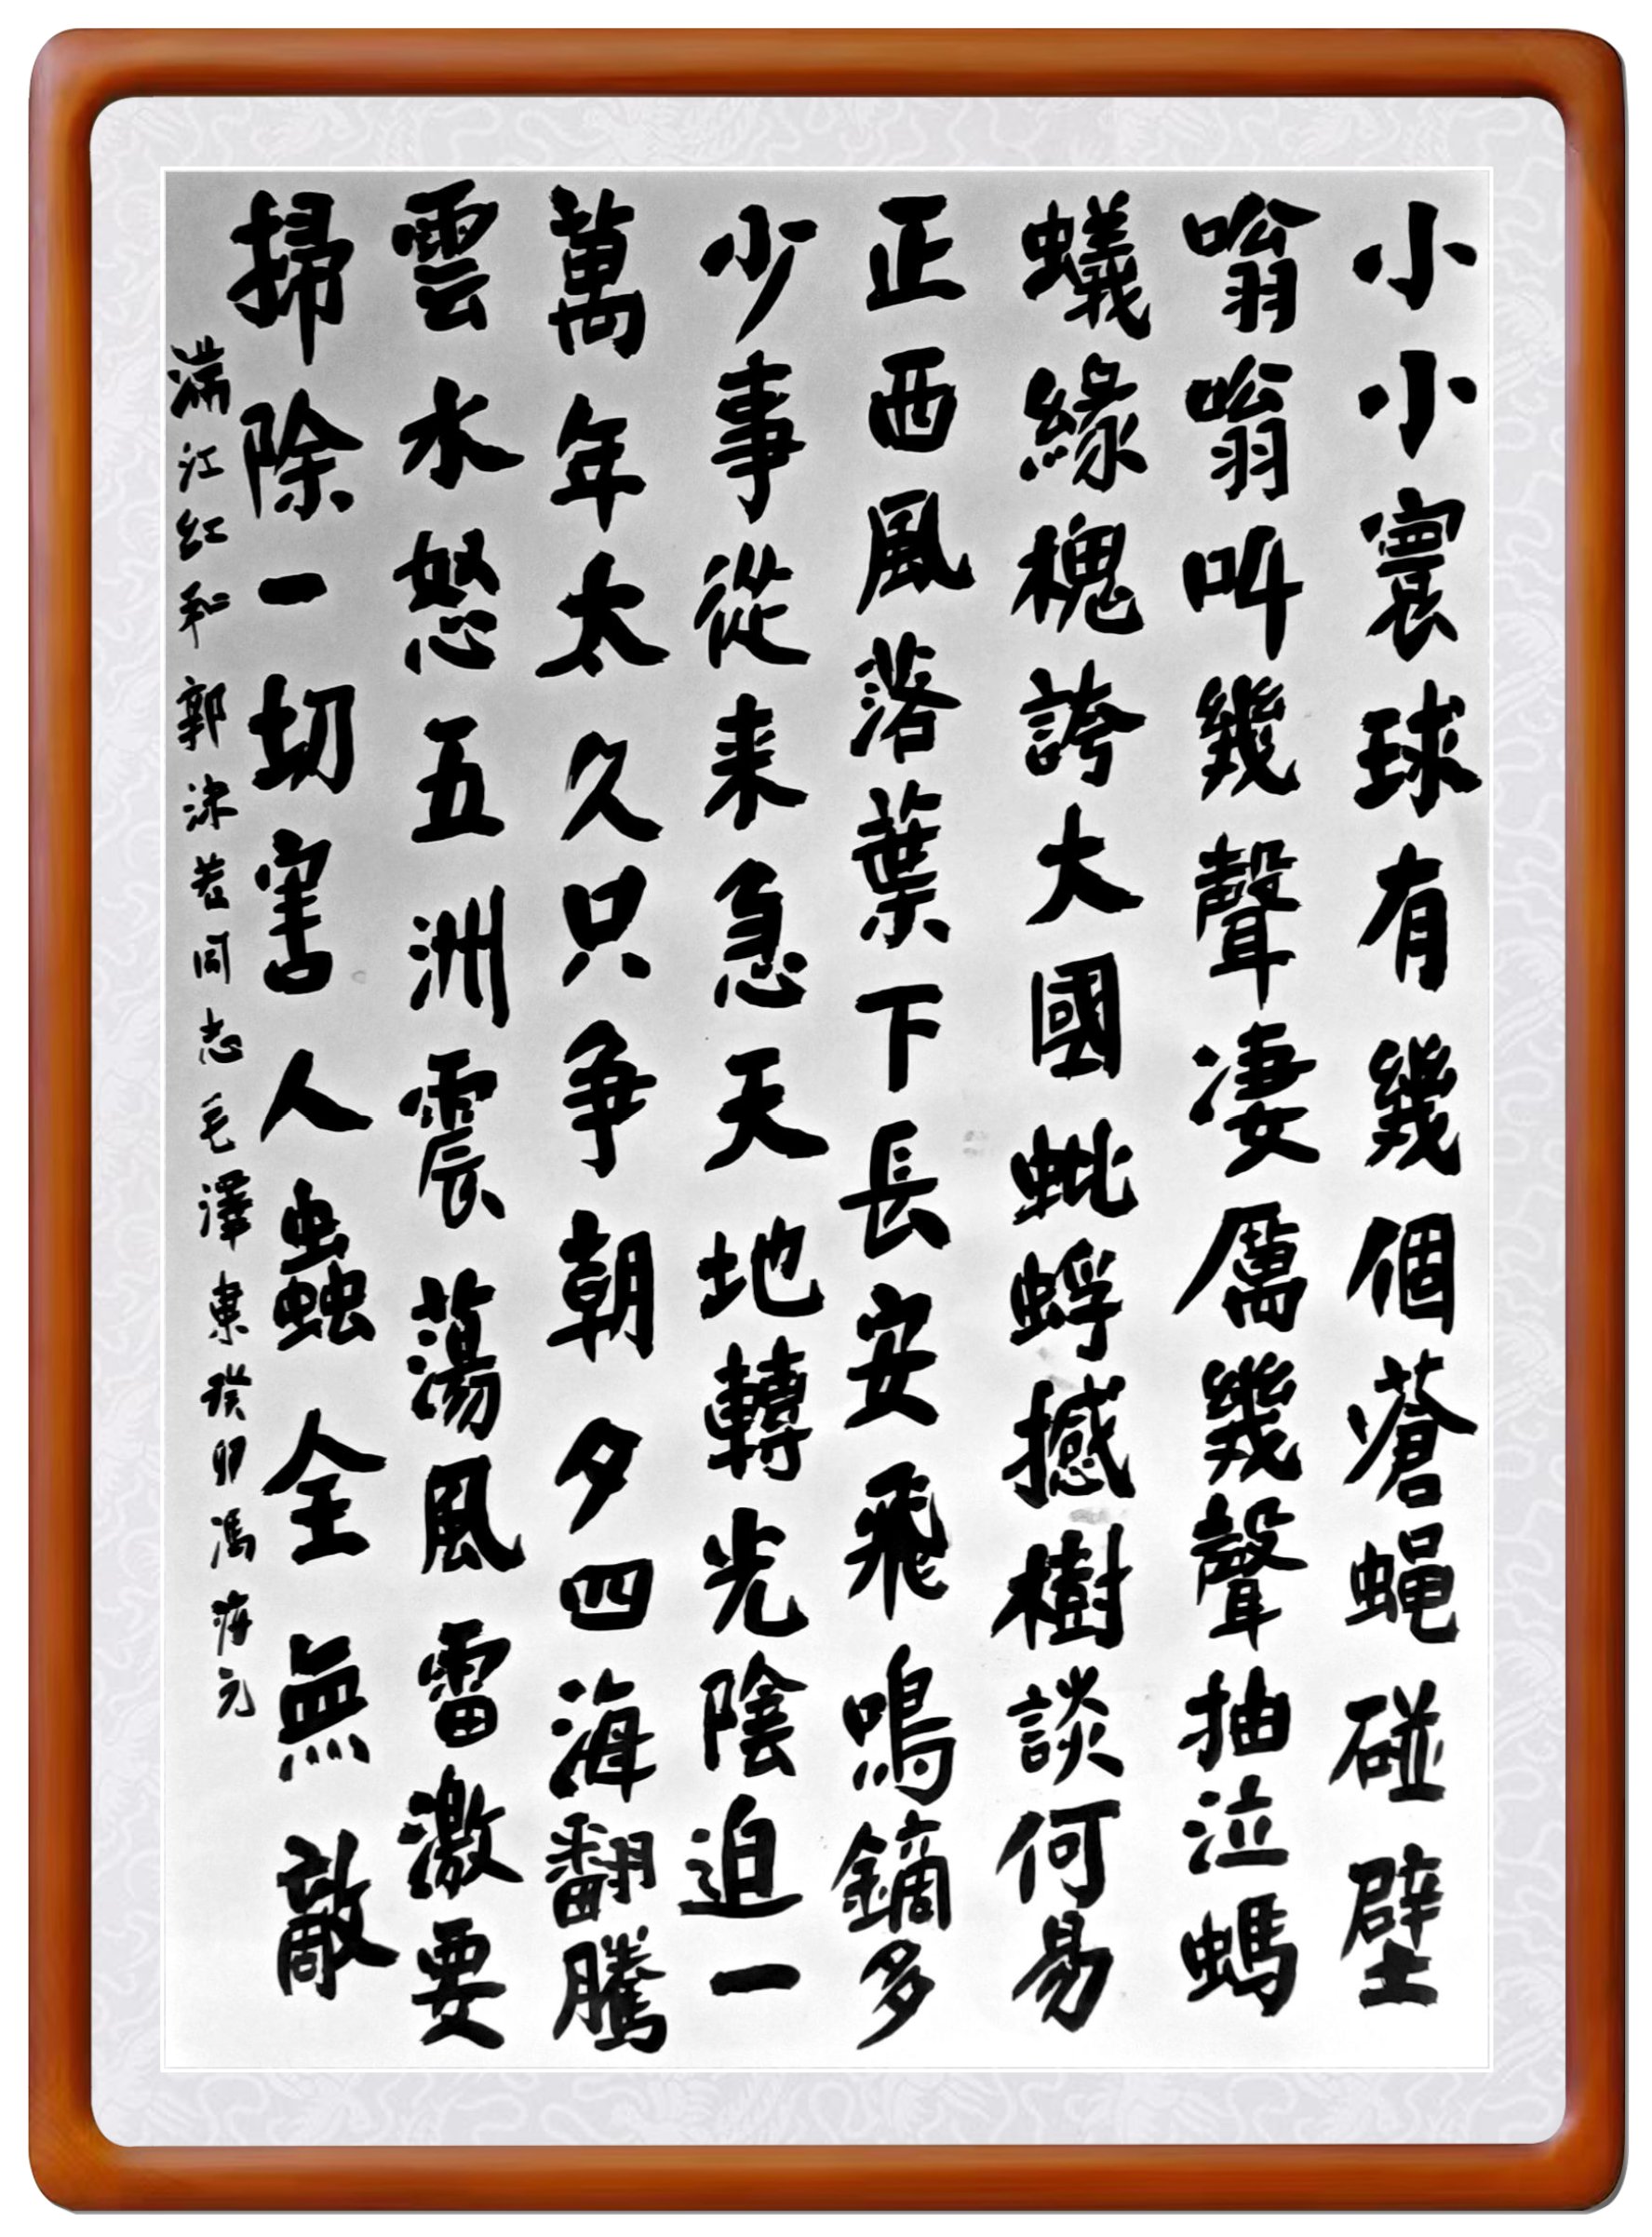 小小寰球有幾個蒼蝇碰壁
嗡嗡叫幾聲凄厲幾聲抽泣螞
蟻緣槐誇大國蚍蜉撼樹談何易
正西風落葉下長安飛鳴鏑多
少事從来急天地轉光陰迫一
萬年太久只争朝夕四海翻騰
雲水怒五洲震蕩風雷激要
掃除一切害人蟲全無敵
满江红和郭沫若同志毛澤東癸卯馮元